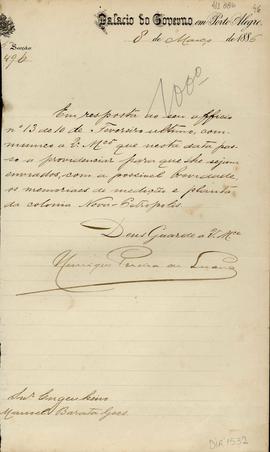 Palacio do Governo em Porto Alegre,
8 de Março de 1886
Secção
496
1000
Em resposta ao seu officio
nº 13 de 10 de Fevereiro ultimo, com-
munico a V. Mcê que nesta data pas-
so a providenciar para que lhe sejam
enviados, com a possivel brevidade
os memoriaes de medição e planta
da colonia Nova-Petropolis.
Deus Guarde a V. Mce
Henrique Pereira de Lucena
Snr. Engenheiro
Manoel Barata Góes
DIR 1532